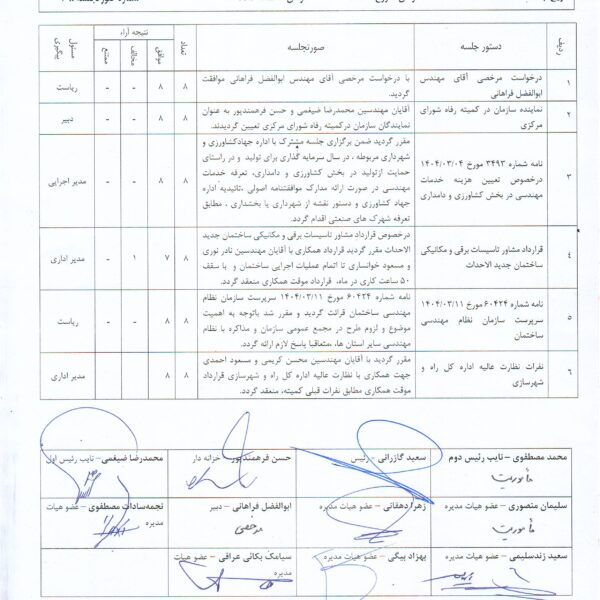 نتیجه آراء
ردیف
دستور جلسه
صورتجلسه
تعداد
موافق
مخالف
ممتنع
مسئول پیگیری
۱
درخواست مرخصی آقای مهندس
ابوالفضل فراهانی
با درخواست مرخصی آقای مهندس ابوالفضل فراهانی موافقت
گردید.
۸
۸
-
-
ریاست
۲
نماینده سازمان در کمیته رفاه شورای
مرکزی
آقایان مهندسین محمدرضا ضیغمی و حسن فرهمندپور به عنوان
نمایندگان سازمان درکمیته رفاه شورای مرکزی تعیین گردیدند.
۸
۸
-
-
دبیر
۳
نامه شماره ۳۴۹۳ مورخ ۱۴۰۴/۰۳/۰۴
درخصوص تعیین هزینه خدمات
مهندسی در بخش کشاورزی و دامداری
مقرر گردید ضمن برگزاری جلسه مشترک با اداره جهادکشاورزی و
شهرداری مربوطه ، در سال سرمایه گذاری برای تولید و در راستای
حمایت ازتولید در بخش کشاورزی و دامداری، تعرفه خدمات
مهندسی در صورت ارائه مدارک موافقتنامه اصولی ،تائیدیه اداره
جهاد کشاورزی و دستور نقشه از شهرداری یا بخشداری ، مطابق
تعرفه شهرک های صنعتی اقدام گردد.
۸
۸
-
-
مدیر اجرایی
۴
قرارداد مشاور تاسیسات برقی و مکانیکی
ساختمان جدید الاحداث
درخصوص قرارداد مشاور تاسیسات برقی و مکانیکی ساختمان جدید
الاحداث مقرر گردید قرارداد همکاری با آقایان مهندسین نادر نوری
و مسعود خوانساری تا اتمام عملیات اجرایی ساختمان و با سقف
۵۰ ساعت کاری در ماه، قرارداد موقت همکاری منعقد گردد.
۸
۷
۱
-
مدیر اداری
۵
نامه شماره ۶۰۴۲۴ مورخ ۱۴۰۴/۰۳/۱۱
سرپرست سازمان نظام مهندسی
ساختمان
نامه شماره ۶۰۴۲۴ مورخ ۱۴۰۴/۰۳/۱۱ سرپرست سازمان نظام
مهندسی ساختمان قرائت گردید و مقرر شد باتوجه به اهمیت
موضوع و لزوم طرح در مجمع عمومی سازمان و مذاکره با نظام
مهندسی سایر استان ها، متعاقبا پاسخ لازم ارائه گردد.
۸
۸
-
-
ریاست
۶
نفرات نظارت عالیه اداره کل راه و
شهرسازی
مقرر گردید با آقایان مهندسین محسن کریمی و مسعود احمدی
جهت همکاری با نظارت عالیه اداره کل راه و شهرسازی قرارداد
موقت همکاری مطابق نفرات قبلی کمیته، منعقد گردد.
۸
۸
مدیر اداری
محمد مصطفوی – نایب رئیس دوم
سعید گازرانی – رئیس
حسن فرهمندپور – خزانه دار
محمدرضا ضیغمی – نایب رئیس اول
مأموریت
سلیمان منصوری – عضو هیات مدیره
زهرا دهقانی – عضو هیات مدیره
ابوالفضل فراهانی – دبیر
نجمه‌سادات مصطفوی – عضو هیات
مدیره
مأموریت
مرخصی
سعید زندسلیمی – عضو هیات مدیره
بهزاد بیگی – عضو هیات مدیره
سیامک بکائی عراقی – عضو هیات
مدیره